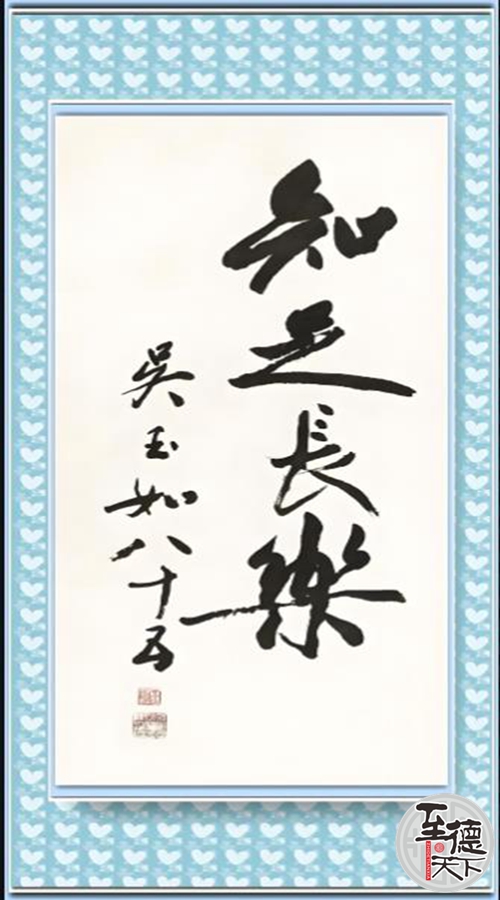 知足长樂
吳玉如八十五
至德天下